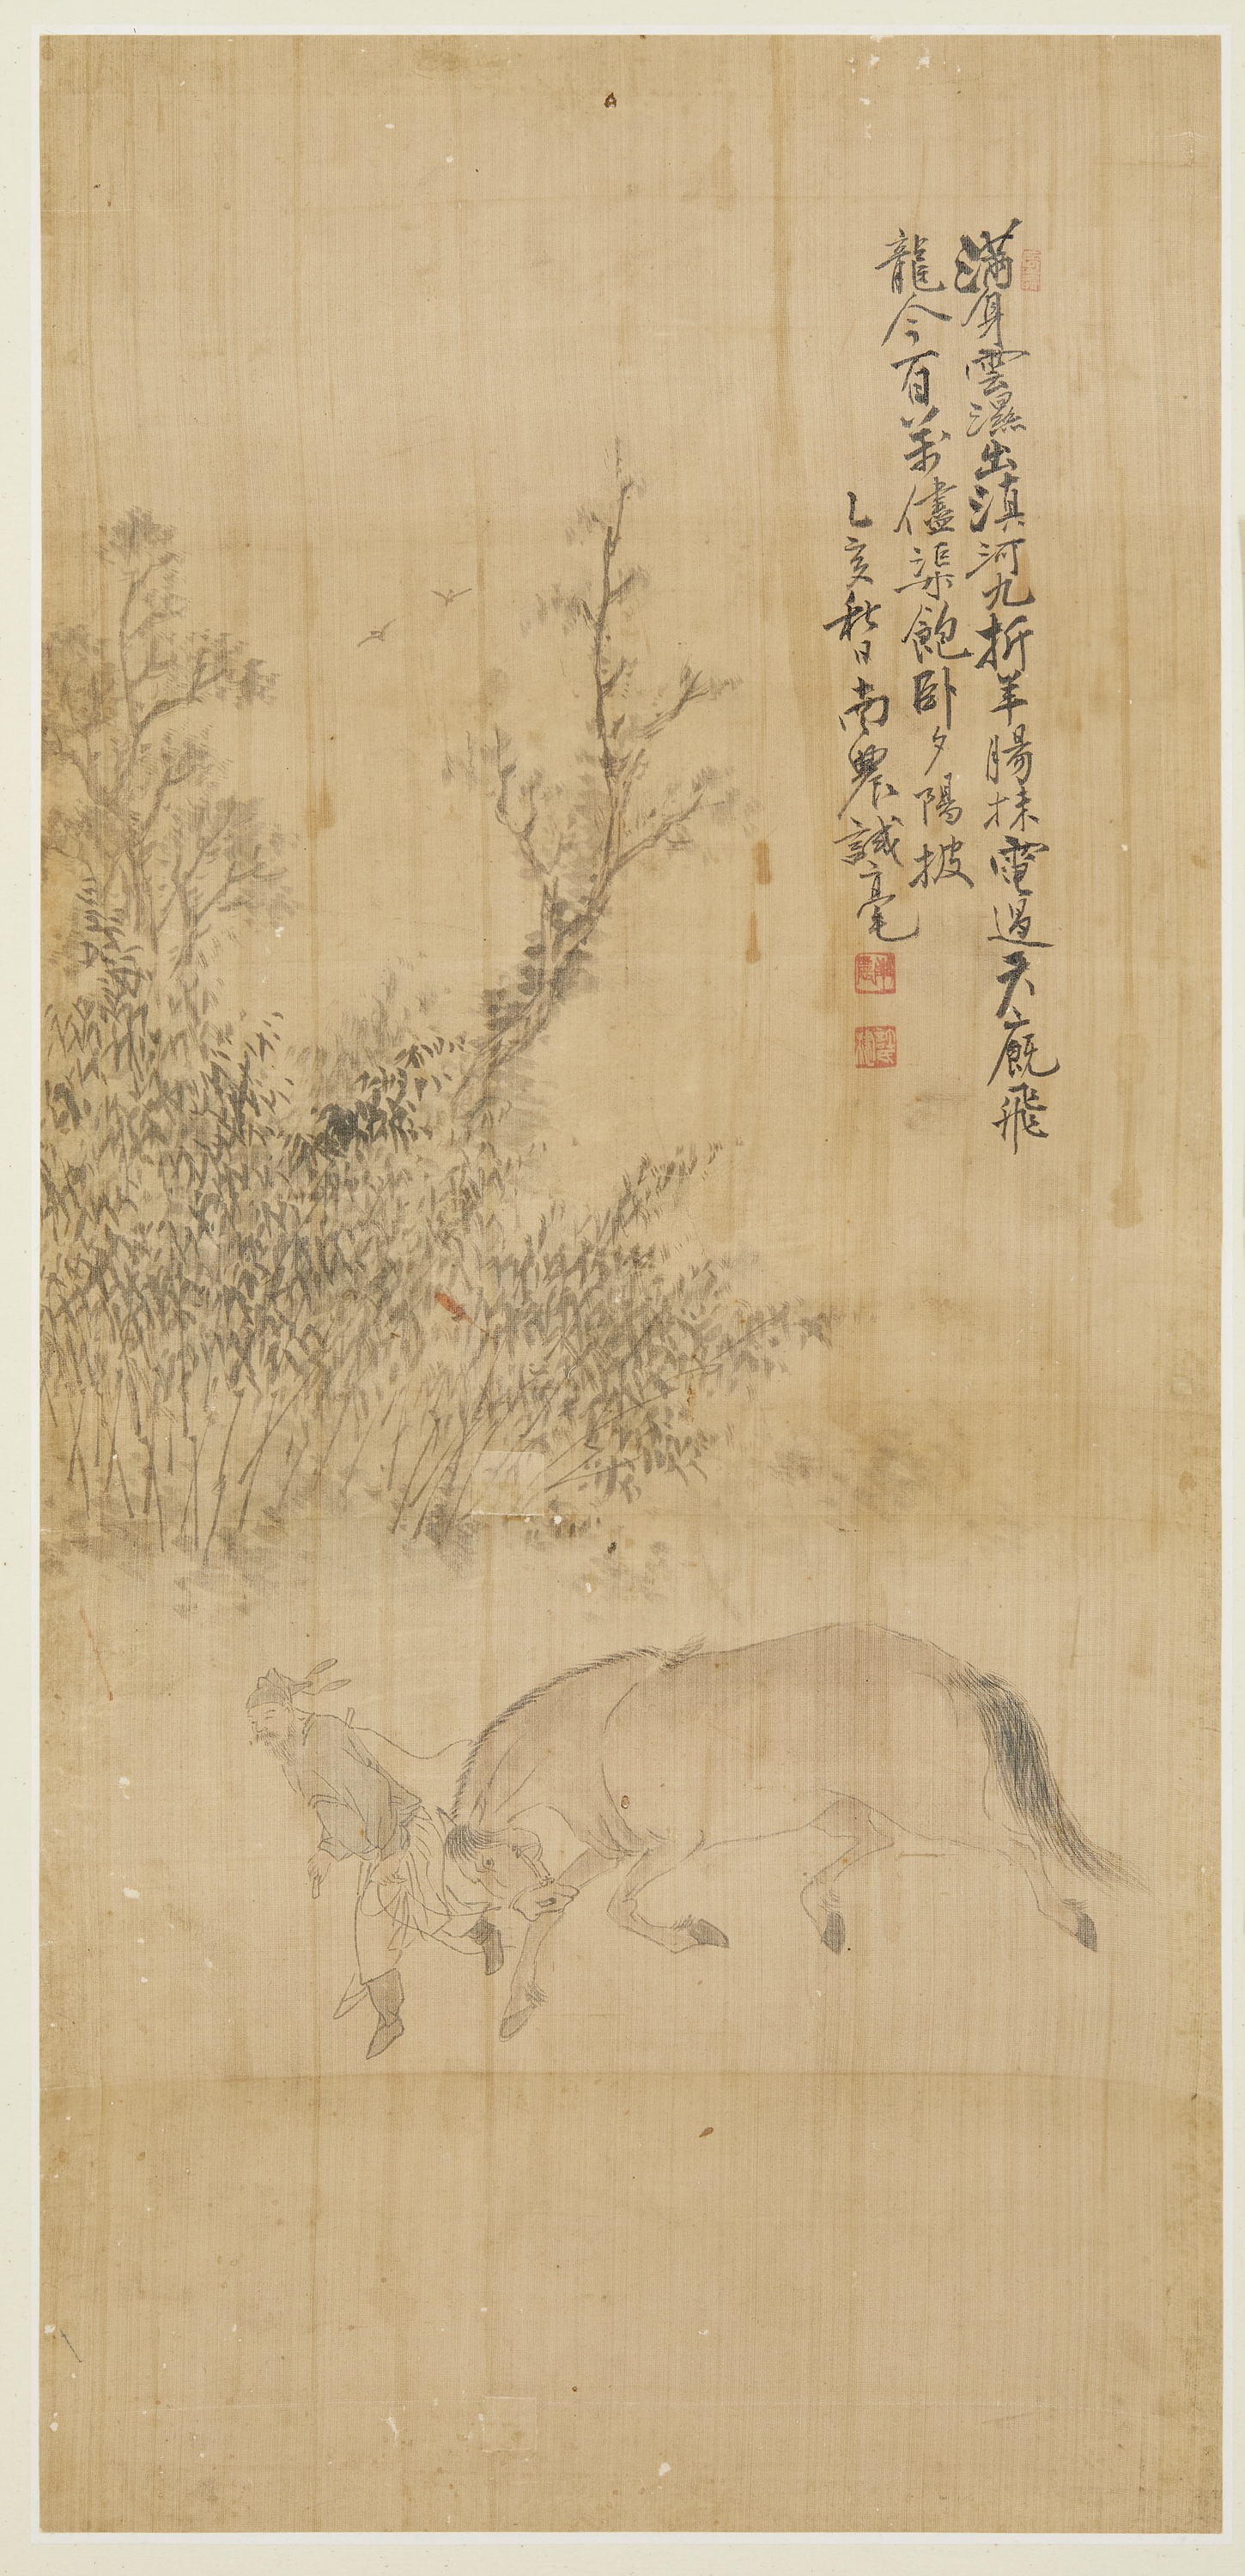 滿身雲濕出滇河九折羊腸抹電過天廐飛
龍今百萬儘渠飽卧夕陽披
乙亥秋日南農試毫
南農